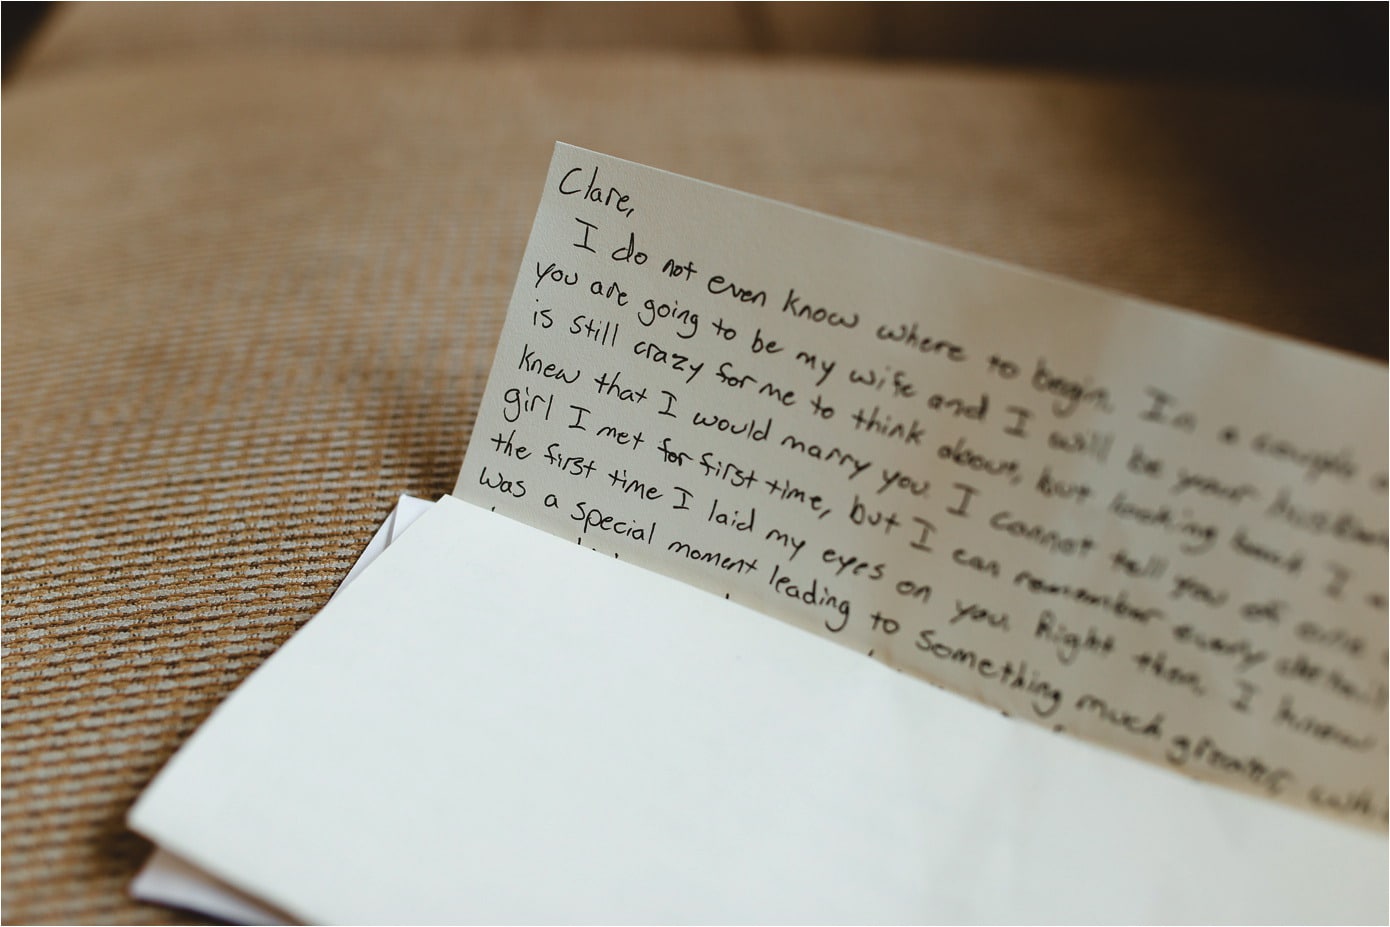 Clare,
I do not even know where to begin. In a couple
you are going to be my wife and I will be your husband
is still crazy for me to think about, but looking back I
knew that I would marry you. I cannot tell you of one
girl I met for first time, but I can remember every detail
the first time I laid my eyes on you. Right then, I knew
was a special moment leading to something much greater,